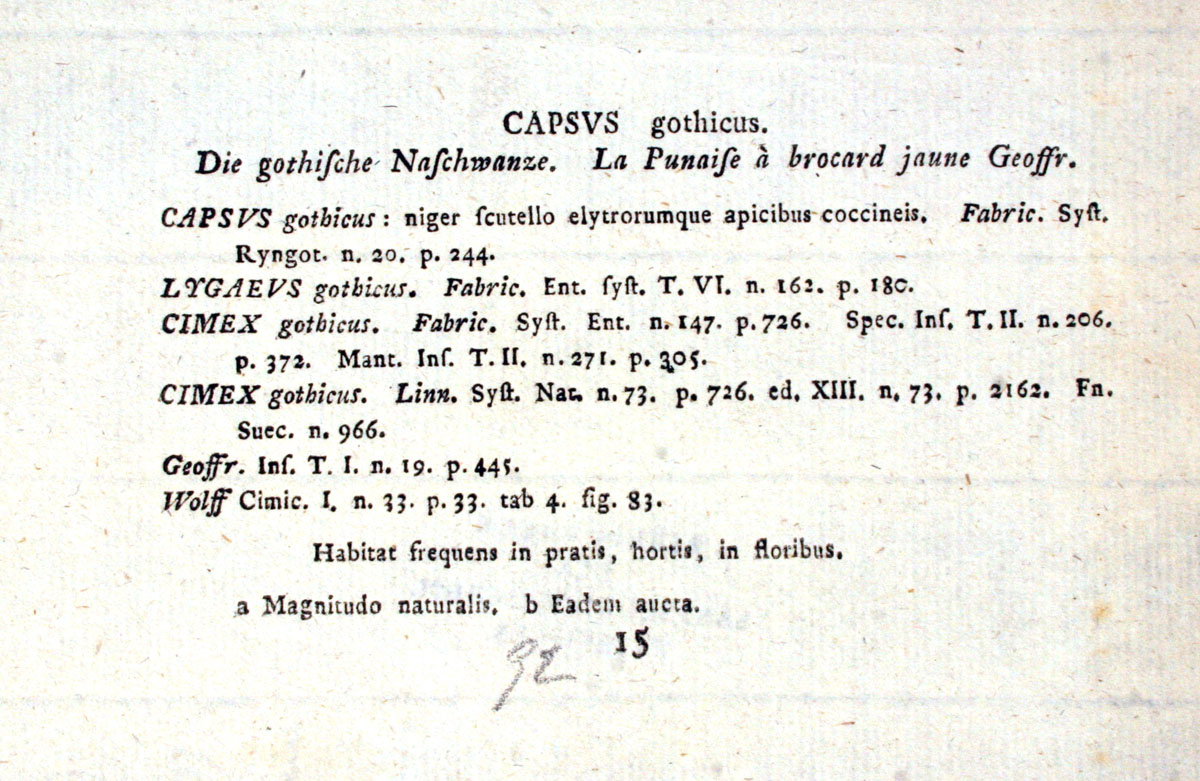 CAPSVS gothicus.
Die gothiſche Naſchwanze. La Punaiſe à brocard jaune Geoffr.
CAPSVS gothicus: niger ſcutello elytrorumque apicibus coccineis. Fabric. Syſt.
Ryngot. n. 20. p. 244.
LYGAEVS gothicus. Fabric. Ent. ſyſt. T. VI. n. 162. p. 180.
CIMEX gothicus. Fabric. Syſt. Ent. n. 147. p. 726. Spec. Inſ. T. II. n. 206.
p. 372. Mant. Inſ. T. II. n. 271. p. 305.
CIMEX gothicus. Linn. Syſt. Nat. n. 73. p. 726. ed. XIII. n. 73. p. 2162. Fn.
Suec. n. 966.
Geoffr. Inſ. T. I. n. 19. p. 445.
Wolff Cimic. I. n. 33. p. 33. tab 4. fig. 83.
Habitat frequens in pratis, hortis, in floribus.
a Magnitudo naturalis. b Eadem aucta.
15
92